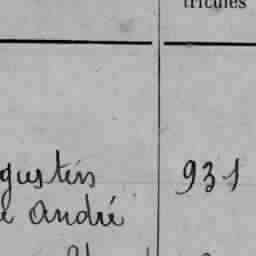 tricules
gustin 931
e André